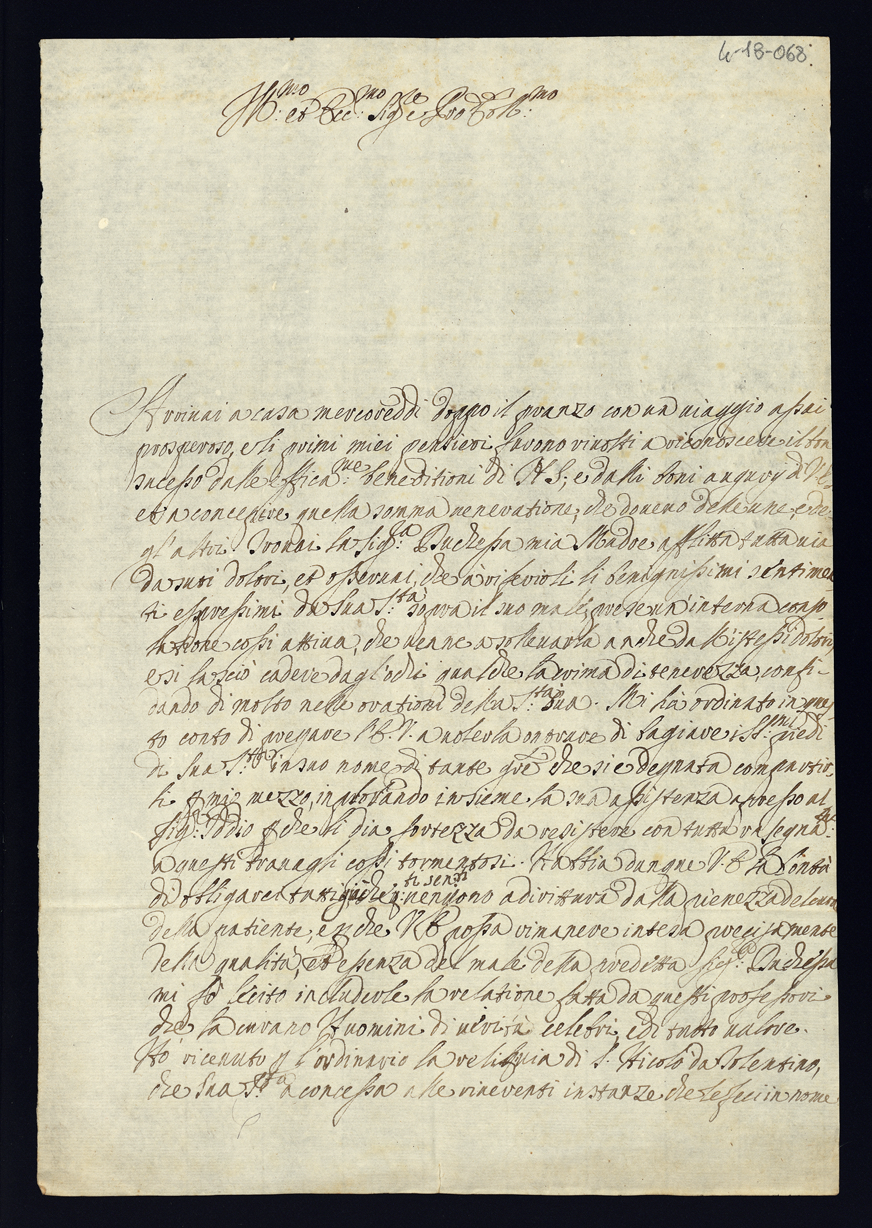 4-13-068
Ill:mo et Ecc:mo Sig.re Pro Coll:mo
Arrivai a casa mercoreddi doppo il pranzo con un uiaggio assai
prosperoso, e li primi miei pensieri furono riuolti a riconoscere il bon
sucesso dalle effica:me beneditioni di N.S., e dalli boni augury di V.E.
et a concepire quella somma veneratione, che doueuo delle une, e de-
gl'altri. Trouai la Sig:ra Duchessa mia Madre afflitta tutta uia
da suoi dolori, et osseruai, che à riferiroli li benignissimi sentimen
ti espressimi da Sua S.tà sopra il suo male, prese un'interna conso
latione cossi attiua, che uenne a solleuarla anche da l'istessi dolori
e si lasciò cadere dagl'ochi qualche lacrima di tenerezza, confi-
dando di molto nelle orationi della S.tà Sua. Mi hà ordinato in ques
to conto di pregare l'E.V. a uolerla onorare di bagiare i SS.mi piedi
di Sua S.tà in suo nome di tante gre che si è degnata compartir
li p mio mezzo, implorando insieme la sua assistenza apresso al
Sig:r Iddio p che li dia fortezza da resistere con tutta rasegna:ne
a questi trauagli cossi tormentosi. Habbia dunque V.E. la bontà
di obligarci tutti, che
ti sensi
uengono adirittura dalla pienezza del cuore
della patiente, e p che V.E. possa rimanere intesa precisamente
della qualità, et essenza del male della predetta Sig:ra Duchessa
mi fò lecito includerle la relatione fatta da questi professori
che la curano Huomini di uerità celebri, e di tutto ualore.
Hò riceuuto p l'ordinario la reliquia di S. Nicolò da Tolentino,
che Sua S.tà a concessa alle riuerenti instanze che le feci in nome